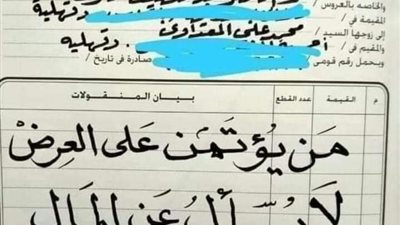 والخاصه بالعروس /
المقيمة في / دقهلية
إلى زوجها السيد / محمد على
والمقيم في / دقهلية
ويحمل رقم قومى صادرة في تاريخ /
بيان المنقولات
م عدد القطع القيمة
مَن يُؤتمَن عَلى العِرضْ
لَا يُسأل عَن المال